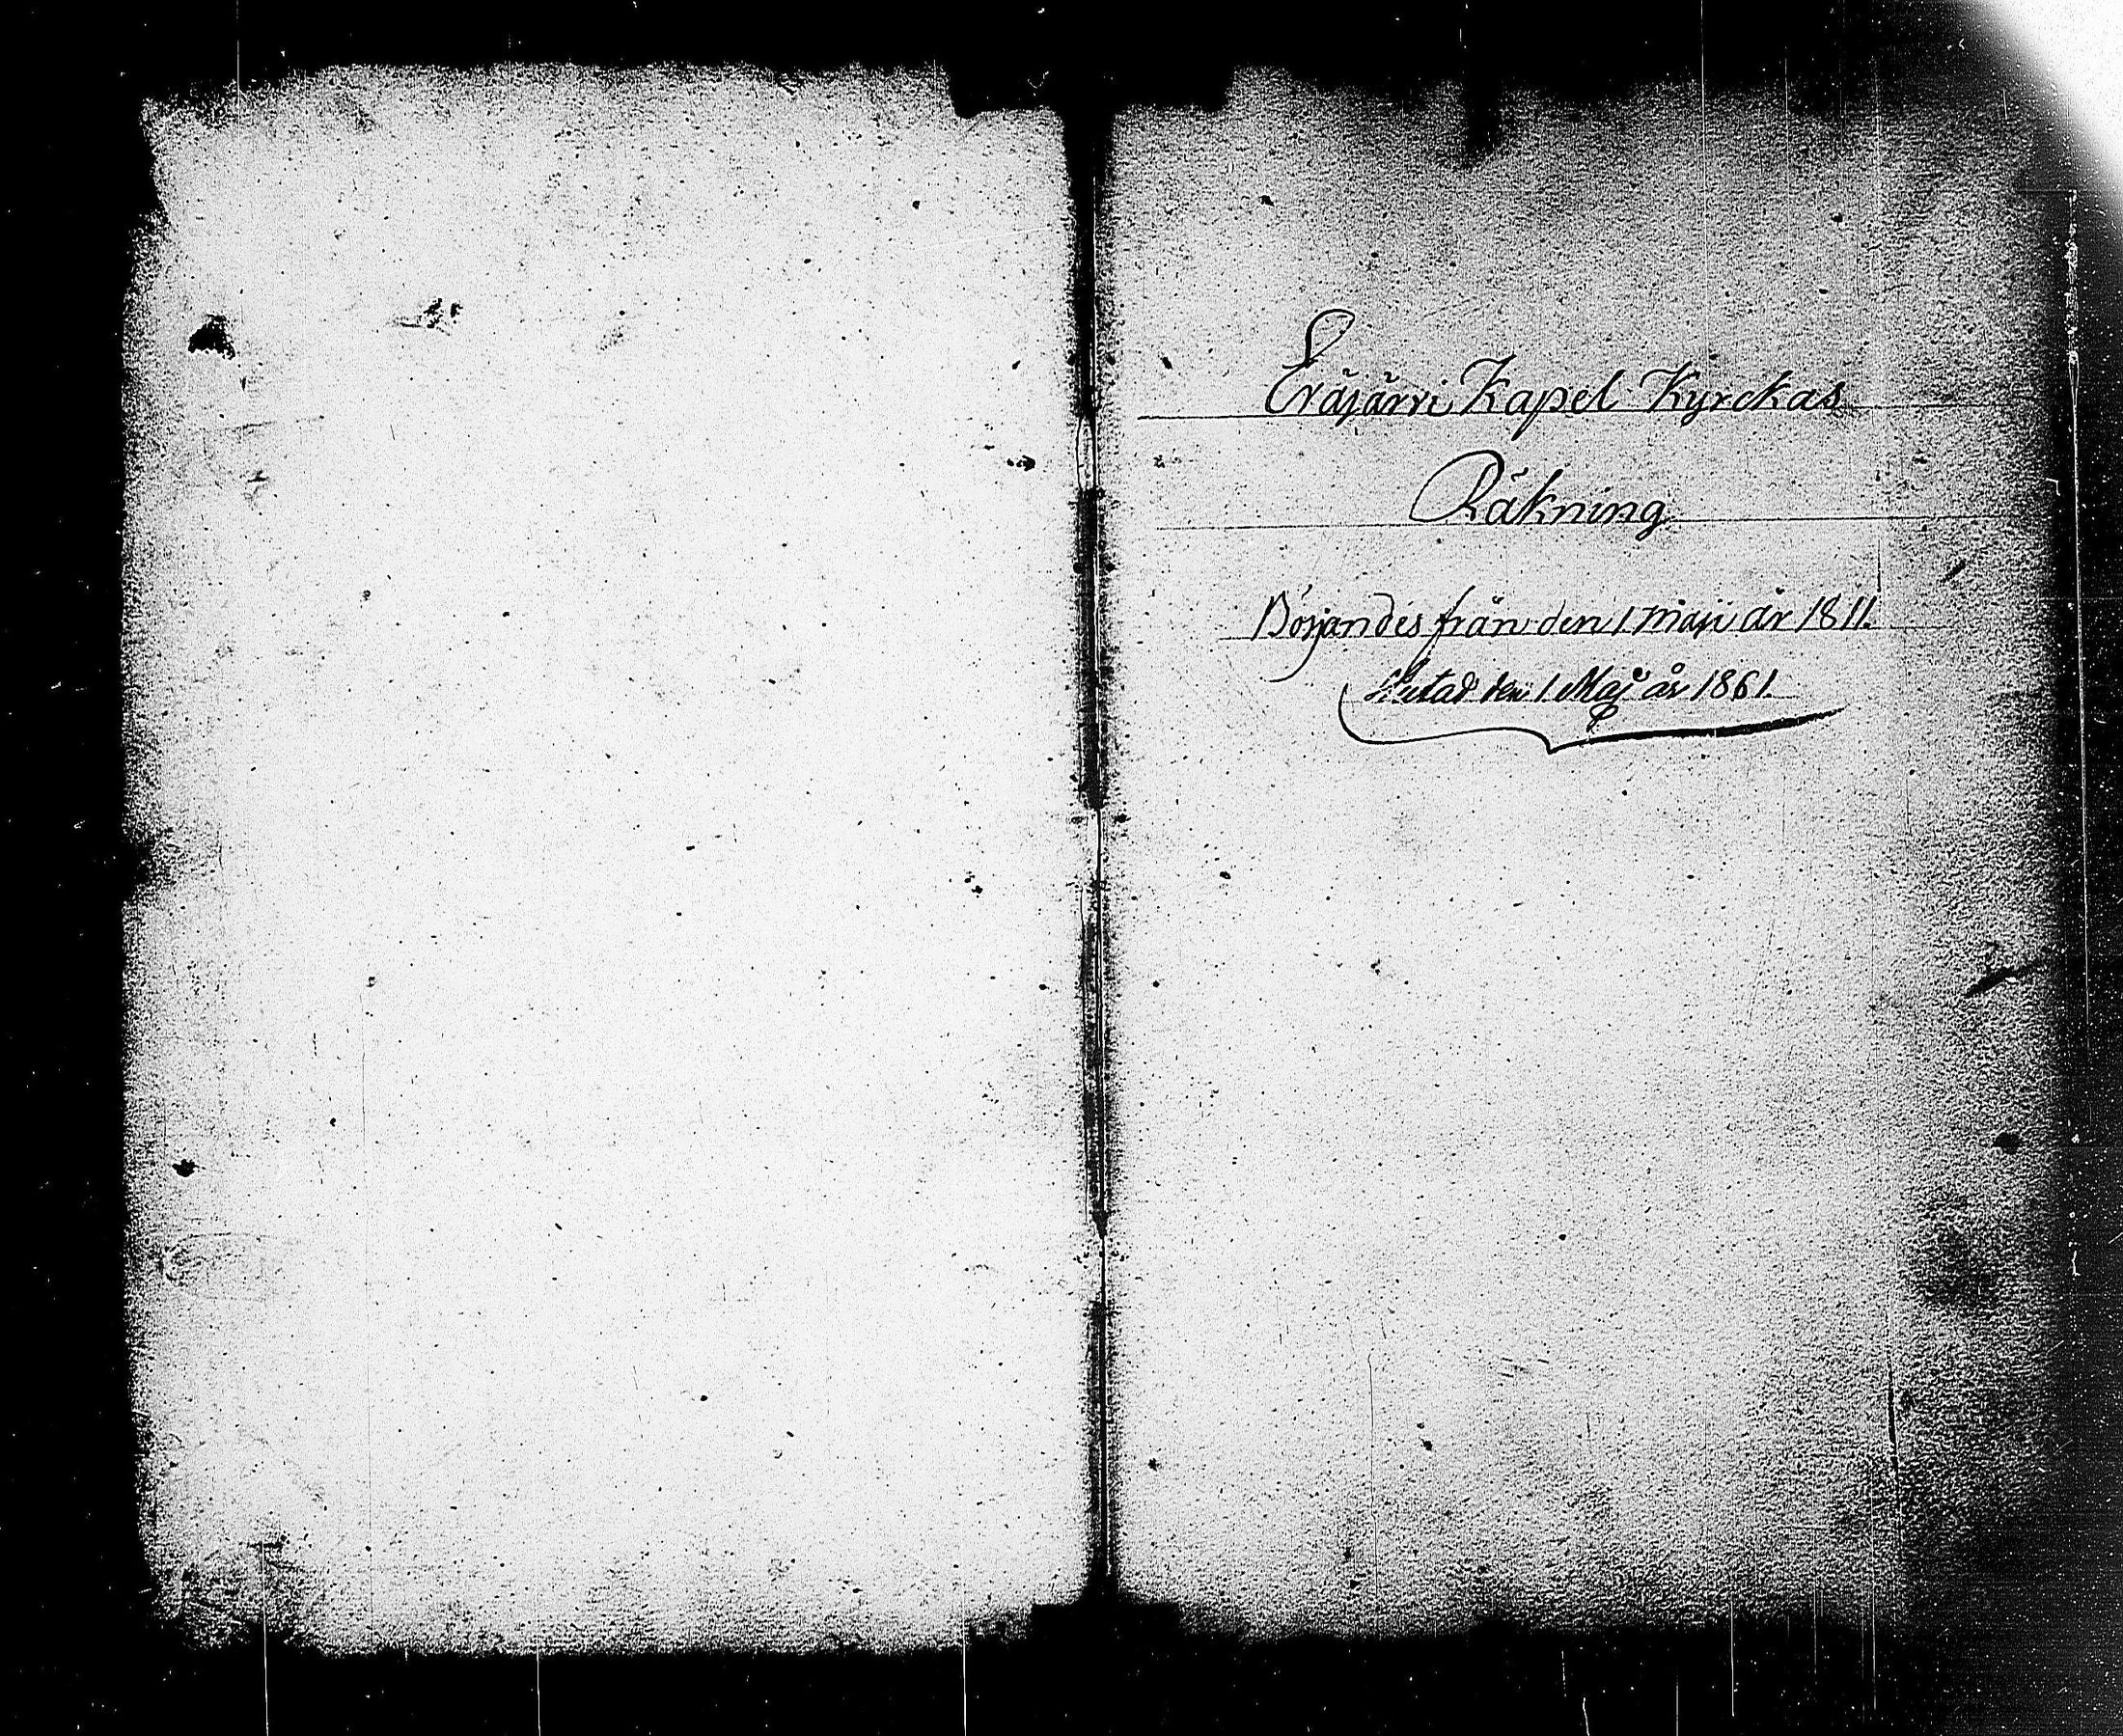 Eräjärvi Kapel Kyrckas
Räkning
Börjandes från den 1 maji år 1811.
Slutad den 1 Maj år 1861.